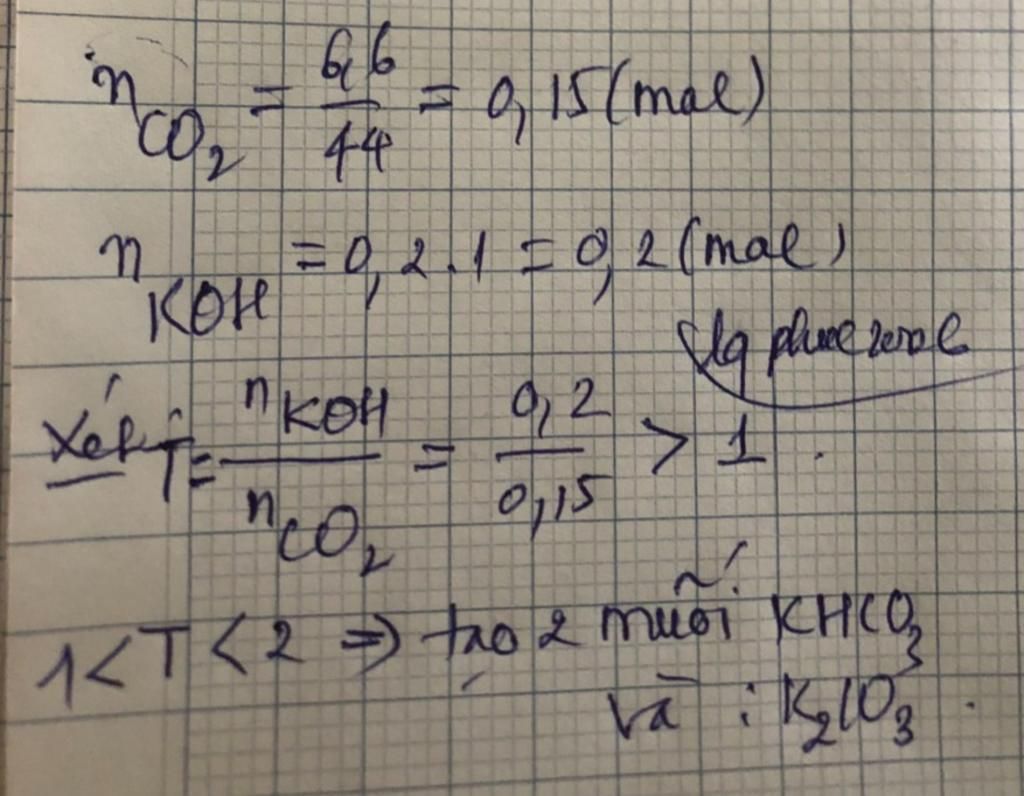 n CO2 = 6,6 / 44 = 0,15 (mol)
n KOH = 0,2 . 1 = 0,2 (mol)
Xét T = n KOH / n CO2 = 0,2 / 0,15 > 1 .
1 < T < 2 => tạo 2 muối KHCO3
và : K2CO3 .